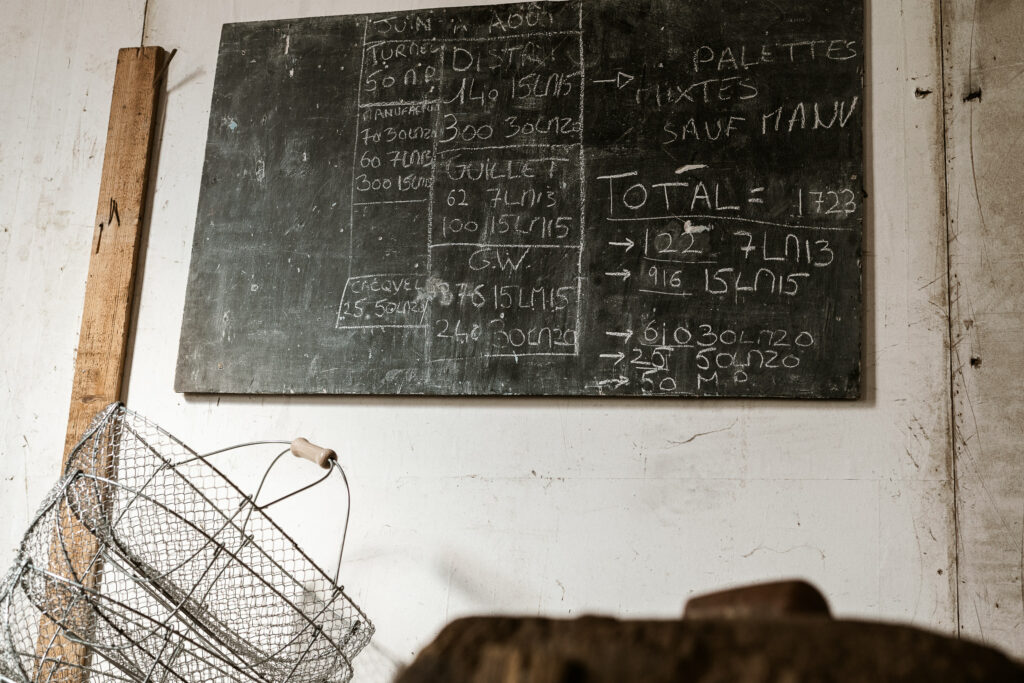 JUIN A AOÛT
TURNEL
50 M.P
MANUFACT
70 30LM20
60 7LM13
300 15LM15
CACQVEL
25. 50LM20
140 15LM15
300 30LM20
GUILLET
62 7LM13
100 15LM15
G.W.
376 15LM15
240 30LM20
PALETTES
MIXTES
SAUF MANU
TOTAL = 1723
→ 122 7LM13
→ 916 15LM15
→ 610 30LM20
→ 25 50LM20
→ 50 M P